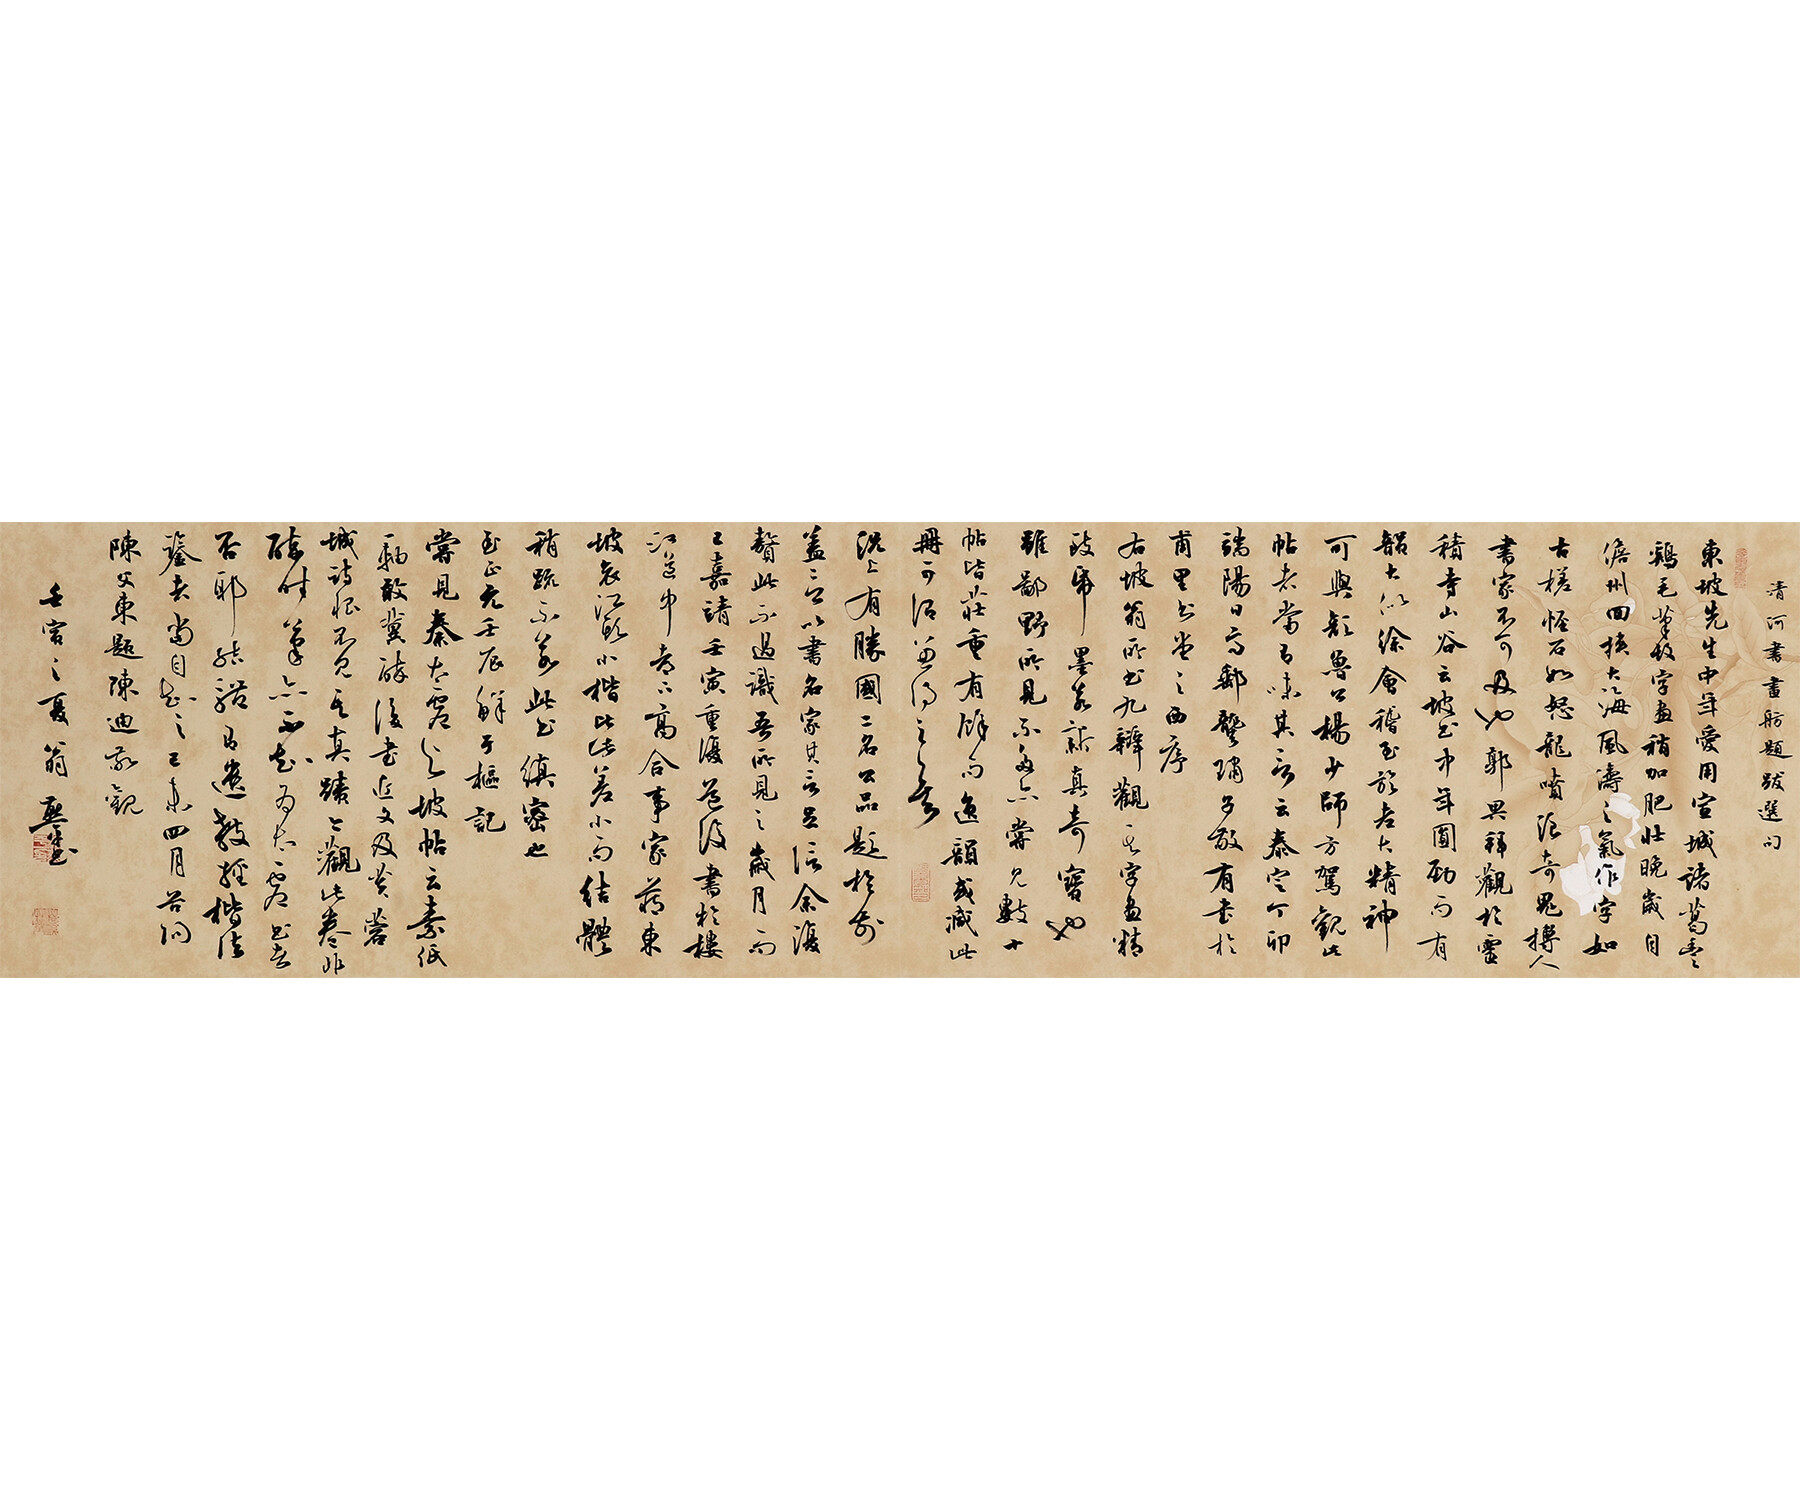 清河書畫舫題跋選句
東坡先生中年愛用宣城諸葛豐
鷄毛筆故字畫稍加肥壯晚歲自
儋州回挾大海風濤之氣作字如
古槎怪石如怒龍噴浪奇鬼搏人
書家不可及也郭畀拜觀於靈
積寺山谷云坡書中年圓勁而有
韻大似徐會稽至於老大精神
可與顏魯公楊少師方駕觀此
帖者當有味其言云泰定丁卯
端陽日高郵龔璛子敬有書於
甫里書堂之西序
右坡翁所書九辯觀其字畫精
緻筆墨奇 真奇寶也
雖鄙野所見不多亦嘗見數十
帖皆莊重有餘而逸韻或減此
冊可謂兼得之矣
況上有勝國二名公品題於前
蓋三公以書名家其言足信余復
贅此不過識吾所見之歲月而
已嘉靖壽寅重陽 後書於樓
江道中 高合事家藏東
坡哀江頭小楷比此差小而結體
稍疏不若此書縝密也
至正元壬辰鮮于樞記
嘗見秦太虛之坡帖云素紙
一軸敢冀醉後書近文及黃
城詩恨不見其真蹟今觀此卷非
醉時筆亦不知為太虛書者
否耶結韻有遺教經楷法
鑒者當自知之己未四月谷 
陳父東題陳迪敬觀
壬寅之夏翁 書